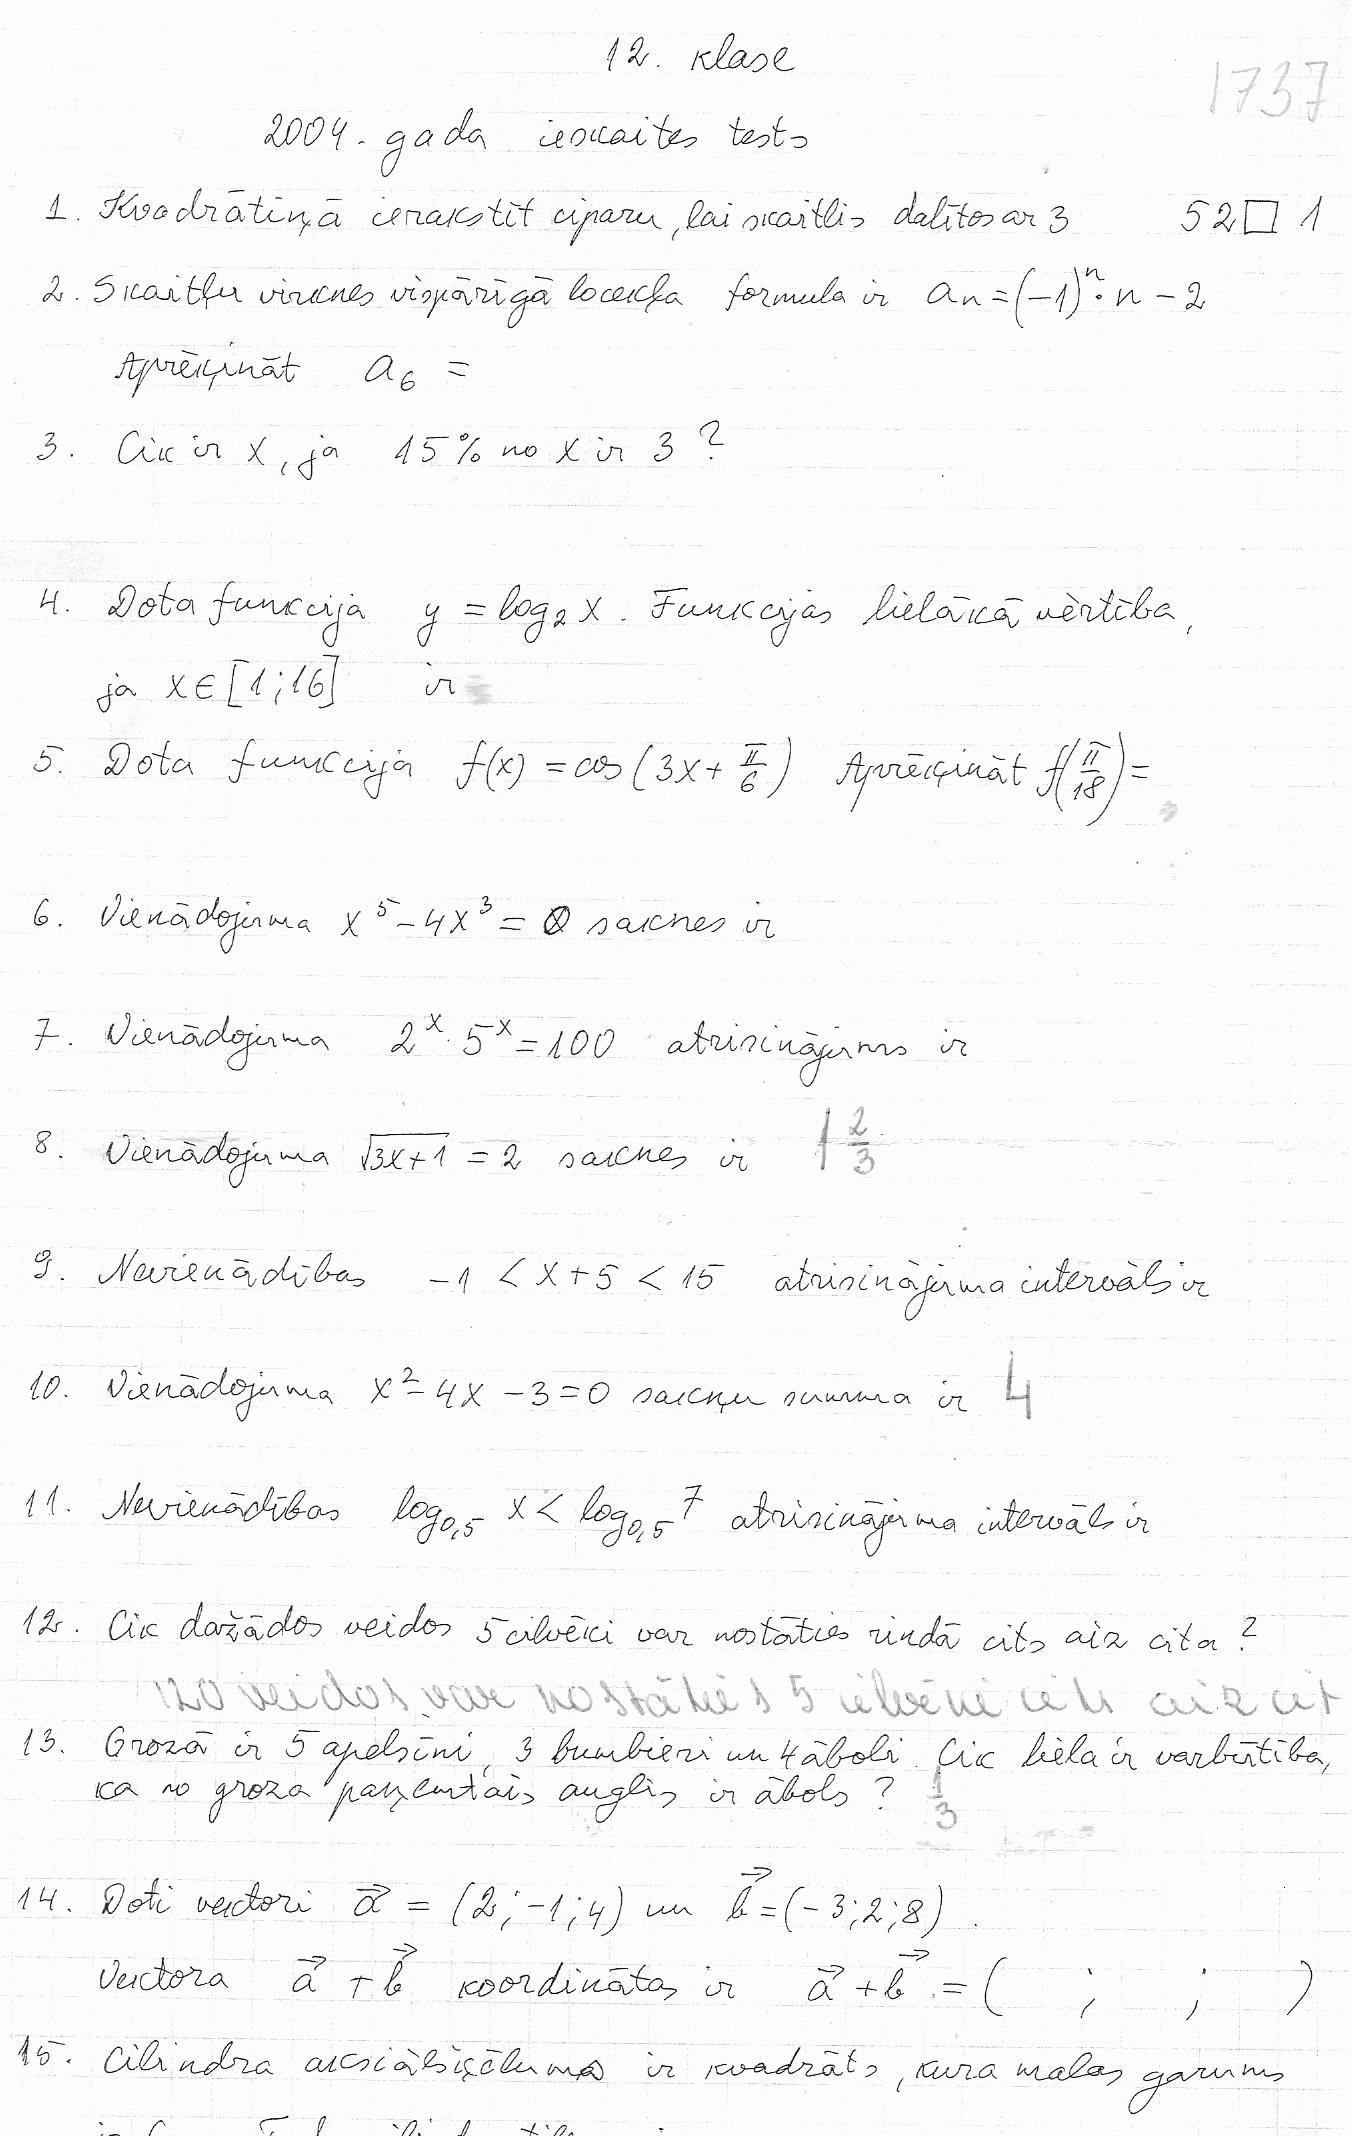 12. klase
1737
2004. gada ieskaites tests
1. Kvadrātiņā ierakstīt ciparu, lai skaitlis dalītos ar 3 52□1
2. Skaitļu virknes vispārīgā locekļa formula ir aₙ=(-1)ⁿ·n-2
Aprēķināt a₆ =
3. Cik ir x, ja 15% no x ir 3?
4. Dota funkcija y = log₂x. Funkcijas lielākā vērtība,
ja x∈[1;16] ir
5. Dota funkcija f(x) = cos(3x+π/6) Aprēķināt f(π/18)=
6. Vienādojuma x⁵-4x³=0 saknes ir
7. Vienādojuma 2ˣ·5ˣ=100 atrisinājums ir
8. Vienādojuma √(3x+1) = 2 saknes ir 1 2/3
9. Nevienādības -1 < x+5 < 15 atrisinājuma intervāls ir
10. Vienādojuma x²-4x-3=0 sakņu summa ir 4
11. Nevienādības log₀,₅ x < log₀,₅ 7 atrisinājuma intervāls ir
12. Cik dažādos veidos 5 cilvēki var nostāties rindā cits aiz cita?
120 veidos var nostāties 5 cilvēki cits aiz cit
13. Grozā ir 5 apelsīni, 3 bumbieri un 4 āboli. Cik liela ir varbūtība,
ka no groza paņemtais auglis ir ābols? 1/3
14. Doti vektori a⃗ = (2;-1;4) un b⃗=(-3;2;8).
Vektora a⃗ + b⃗ koordinātas ir a⃗ + b⃗ = ( ; ; )
15. Cilindra aksiālšķēluma ir kvadrāts, kura malas garums